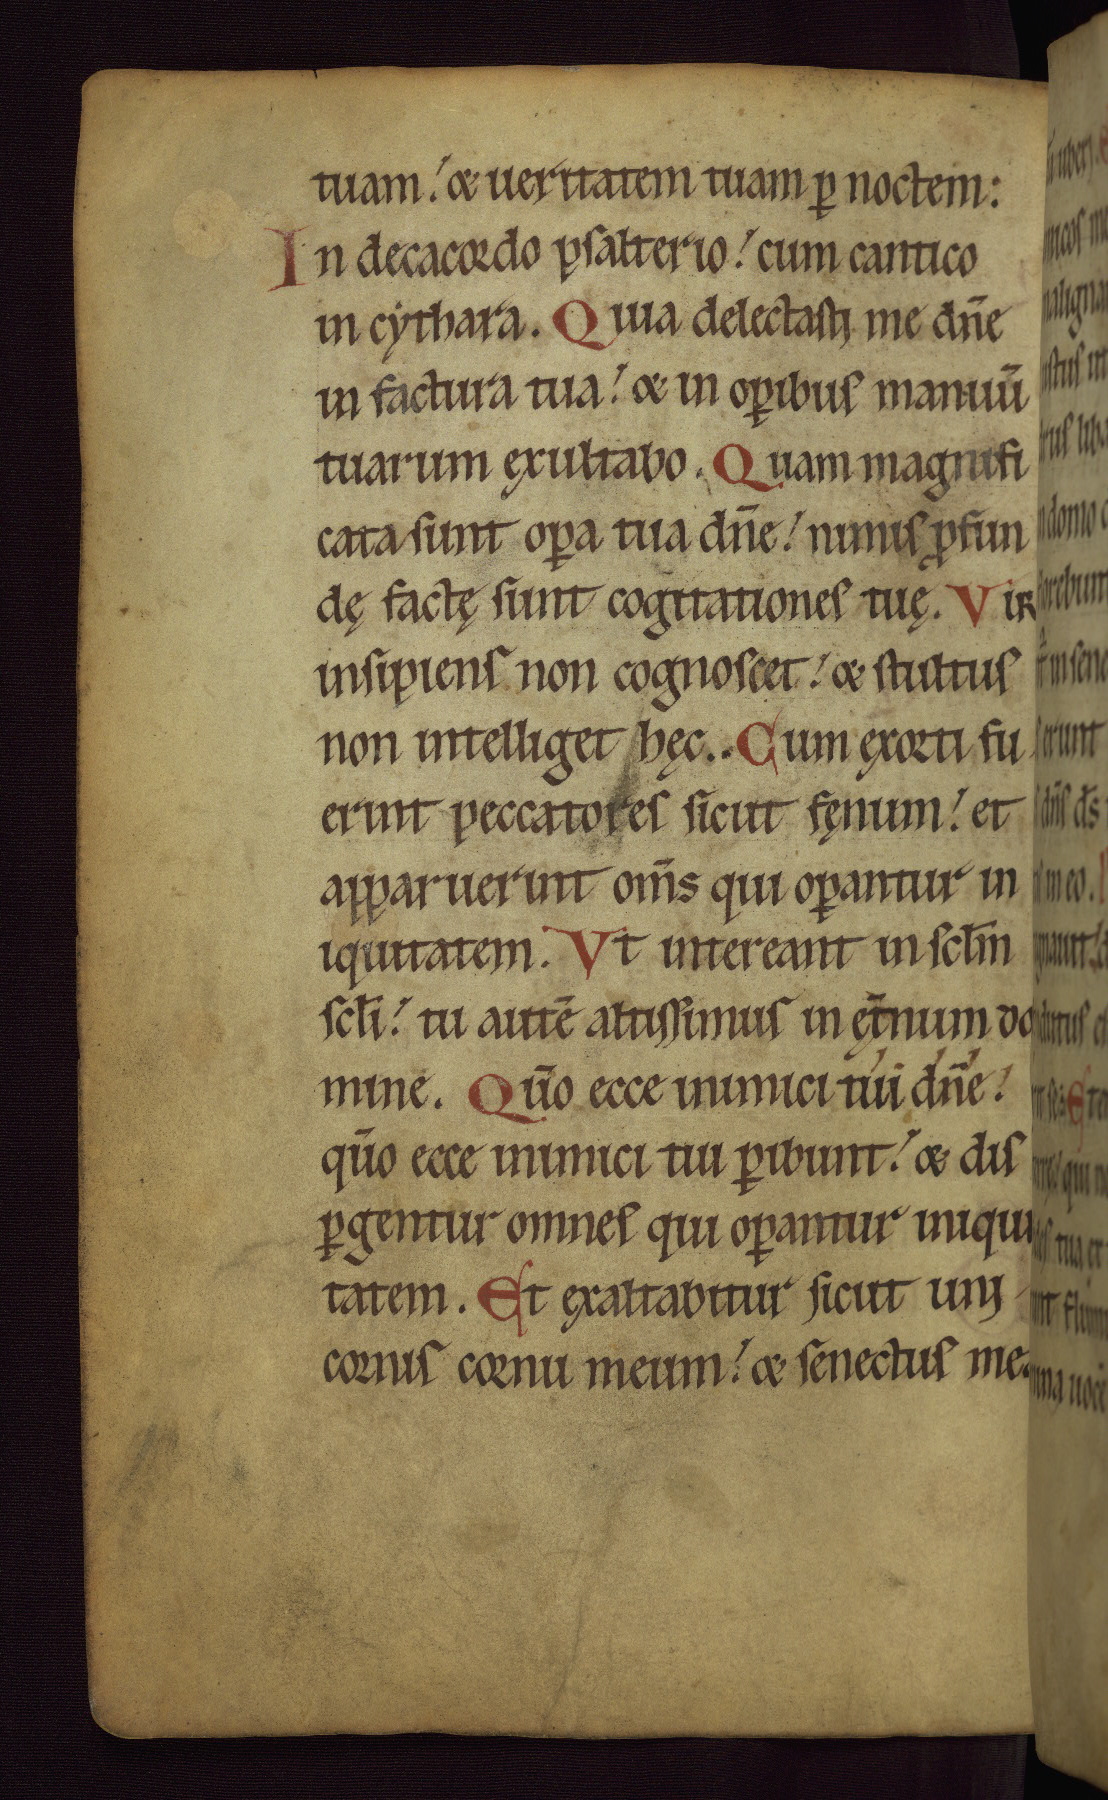 tuam! & ueritatem tuam ꝑ noctem:
In decacordo psalterio! cum cantico
in cẏthara. Quia delectasti me dn̄e
in factura tua! & in oꝑibus manuū
tuarum exultabo. Quam magnifi
cata sunt oꝑa tua dn̄e! nimis ꝓfun
dę factę sunt cogitationes tuę. Vir
insipiens non cognoscet! & stultus
non intelliget hęc.. Cum exorti fu
erint peccatores sicut fęnum! et
apparuerint om̄s qui oꝑantur in
iquitatem. Vt intereant in sclm̄
scli̅! tu autē altissimus in ęt̄num do
mine. Qūo ecce inimici tui dn̄e!
qūo ecce inimici tui ꝑibunt! & dis
ꝑgentur omnes qui oꝑantur iniqui
tatem. Et exaltabitur sicut uni
cornis cornu meum! & senectus me